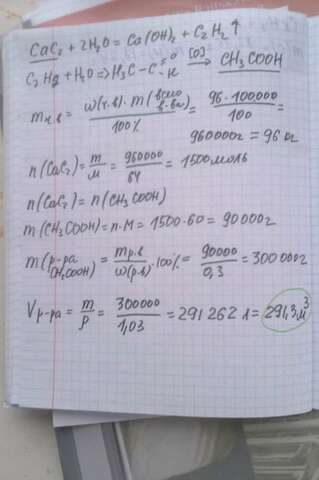 CaC₂ + 2H₂O = Ca(OH)₂ + C₂H₂↑
C₂H₂ + H₂O => H₃C - C =O -H [O] → CH₃COOH
mч.в = ω(ч.в) · m(всего в-ва) / 100% = 96 · 100.000 / 100 =
960000г = 96 кг
n(CaC₂) = m/M = 960000/64 = 1500 моль
n(CaC₂) = n(CH₃COOH)
m(CH₃COOH) = n·M = 1500·60 = 90000г
m(р-ра CH₃COOH) = mр.в / ω(р.в) · 100% = 90000 / 0,3 = 300000г
Vр-ра = m/ρ = 300000 / 1,03 = 291262 л = 291,3 м³